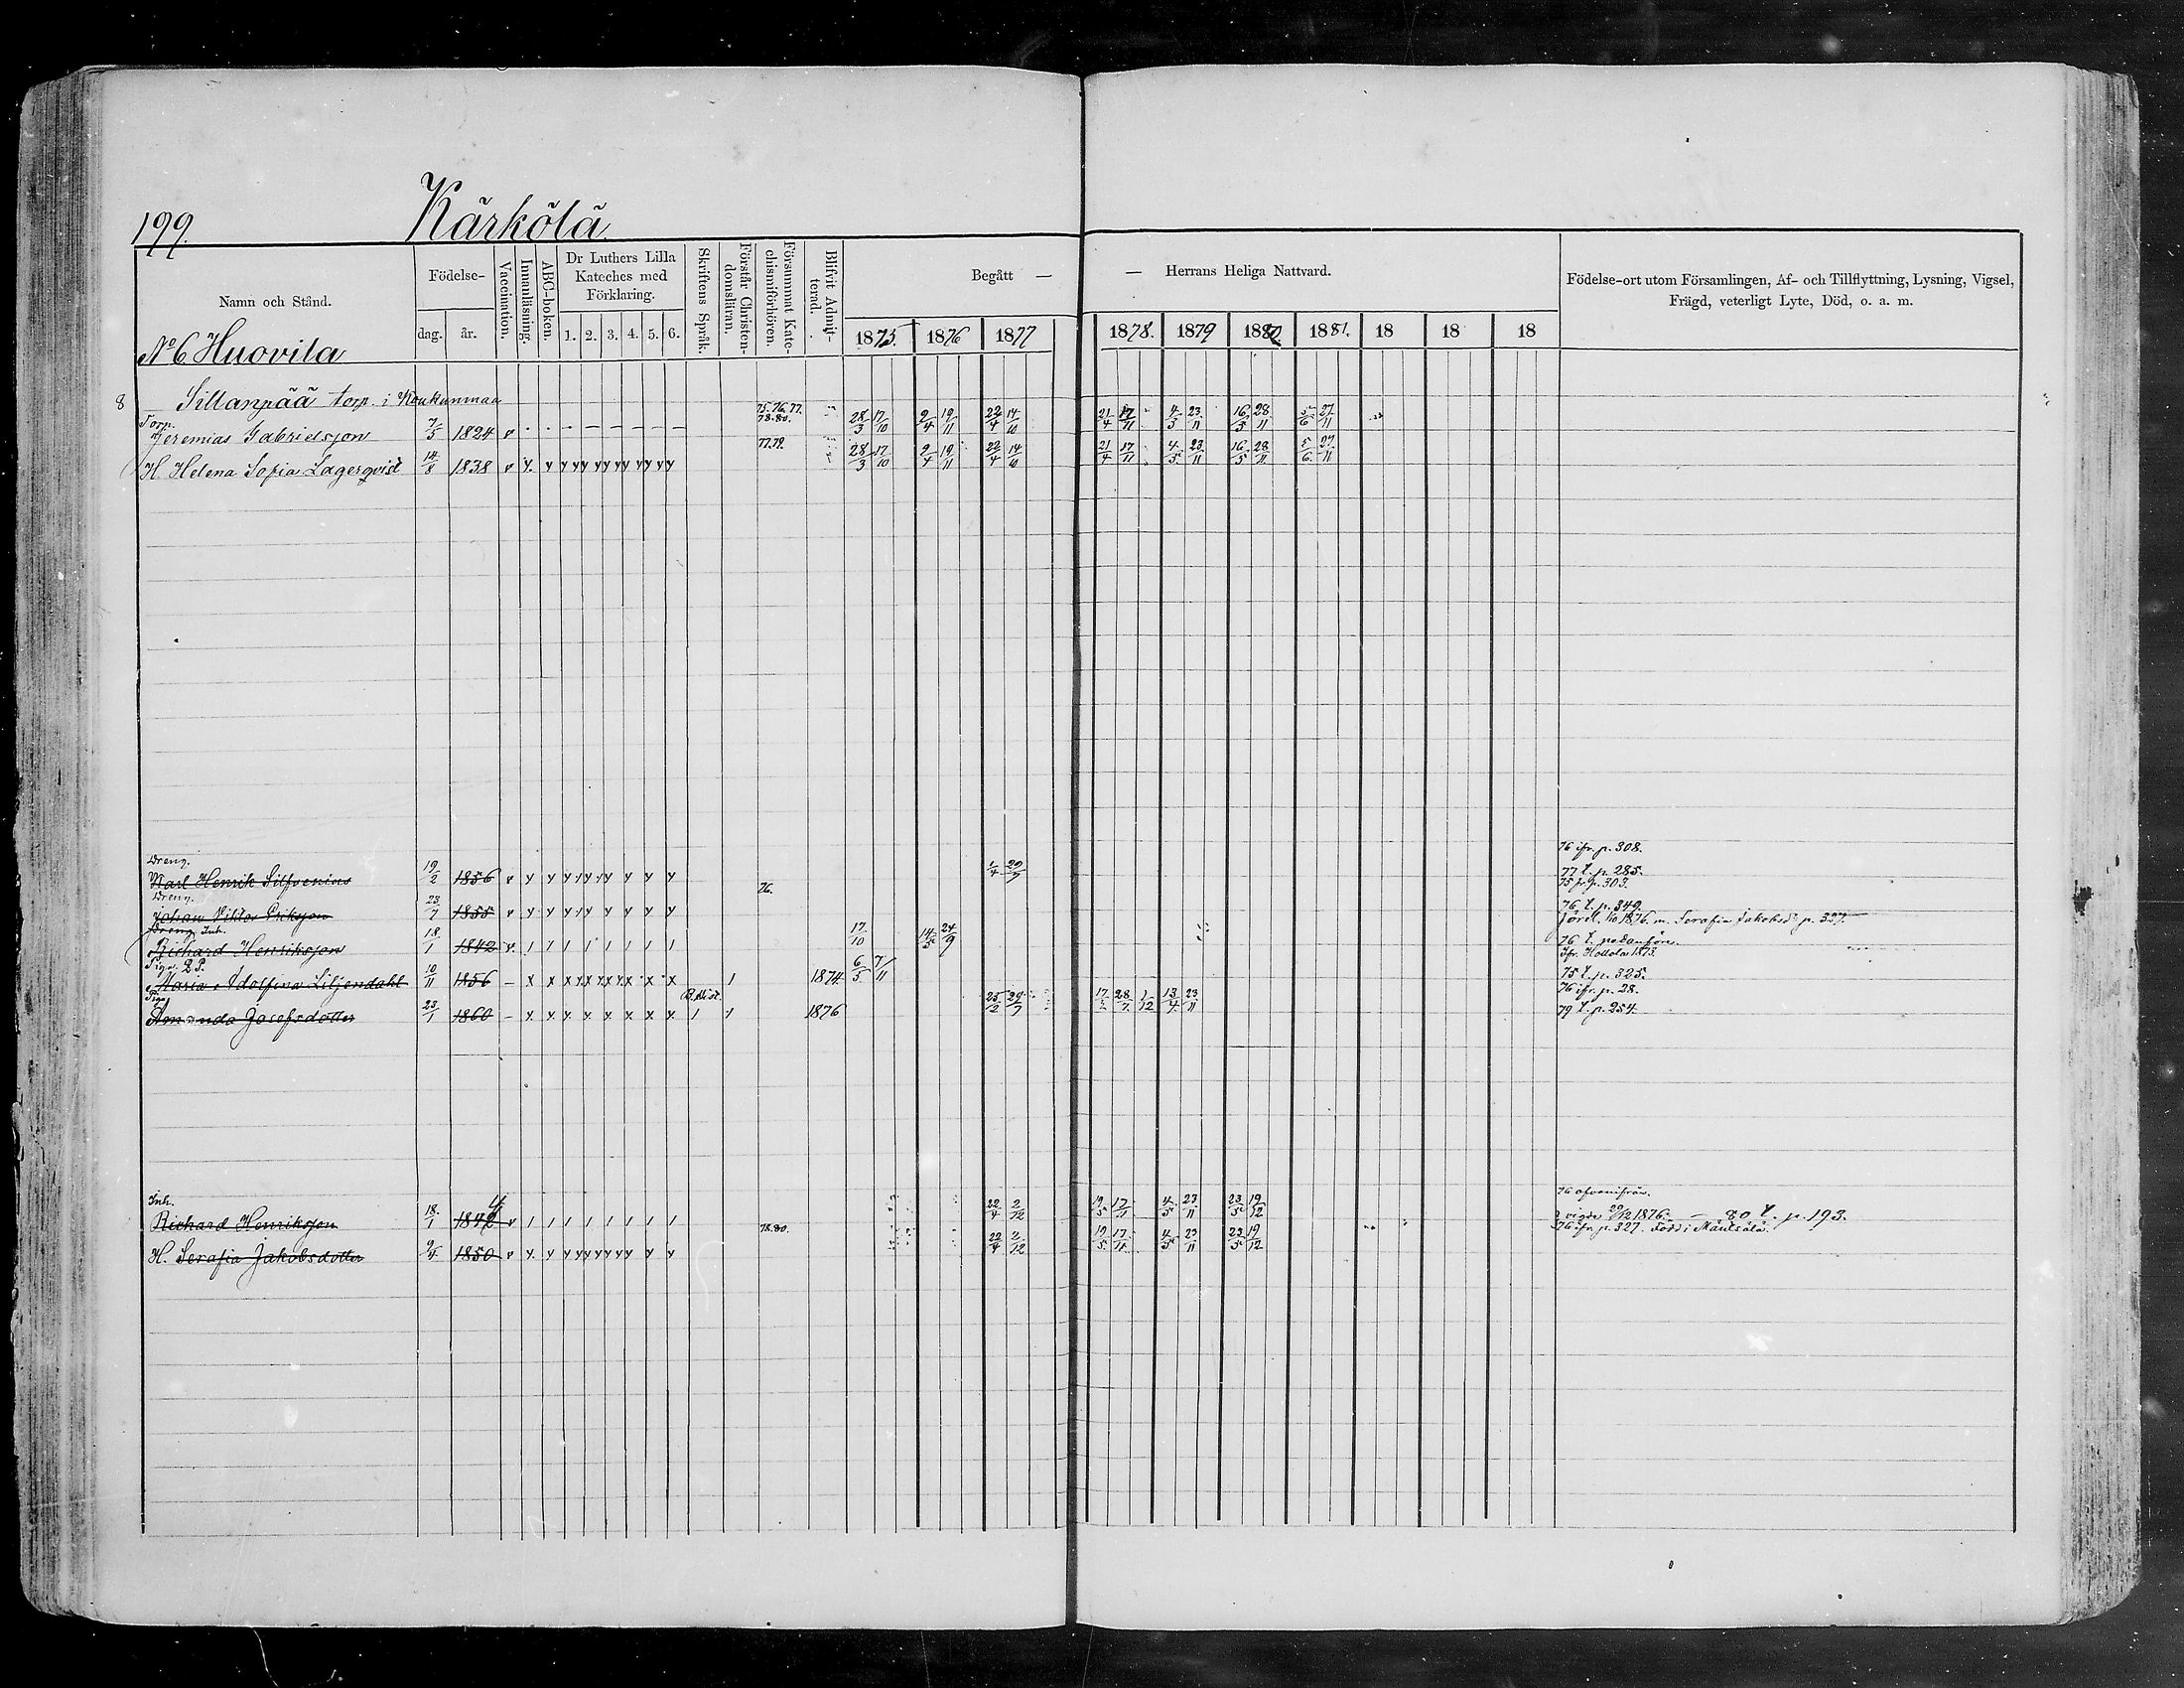 199. Kärkölä
Namn och Stånd. Födelse- dag. år. Vaccination. Innanläsning. ABC-boken. Dr Luthers Lilla Kateches med Förklaring. 1. 2. 3. 4. 5. 6. Skriftens Språk. Förstår Christendomsläran. Försummat Katechismiförhören. Blifvit Admitterad. Begått — — Herrans Heliga Nattvard. Födelse-ort utom Församlingen, Af- och Tillflyttning, Lysning, Vigsel, Frägd, veterligt Lyte, Död, o. a. m.
1875. 1876 1877 1878. 1879 1880 1881. 18 18 18
No 6 Huovila
8 Sillanpää torp. i Koukunmaa
Torp. 75.76.77. 78.80.
Jeremias Gabrielsson 7/5 1824 v 28/3 17/10 2/4 19/11 22/4 14/10 21/4 17/11 4/5 23/11 16/5 28/11 5/6 27/11
77.79.
H. Helena Sofia Lagerqvist 14/8 1838 v 28/3 17/10 2/4 19/11 22/4 14/10 21/4 17/11 4/5 23/11 16/5 28/11 5/6 27/11
Dreng. 76 ifr. p. 308.
Karl Henrik Silfvenius 19/2 1856 v 1/4 29/7 77 t. p. 285.
Dreng. 76. 75 fr. p. 303.
Johan Viktor Eriksson 23/7 1855 v 76 t. p. 349.
Dreng Inh. 1876. m. Serafia Jakobsdr p. 327.
Richard Henriksson 18/1 1842 v. 17/10 14/5 24/9 76 t. nedanföre.
Piga. Ifr. Hollola 1873.
Maria Adolfina Liljendahl 10/11 1856 1 1874. 6/5 7/11 75 t. p. 325.
Piga 76 ifr. p. 28.
Amanda Josefsdotter 23/1 1860 1 1 1876 25/2 29/7 28/7 1/12 13/4 23/11 79 t. p. 254.
Inh. 76 ofvanifrån.
Richard Henriksson 18/1 1842 4 v 22/4 2/12 19/5 17/11 4/5 23/11 23/5 19/12 vigde 1876. — 80 t. p. 193.
78.80. 76 ifr. p. 327. Född i Mäntsälä.
H. Serafia Jakobsdotter 9/4 1850 v 22/4 2/12 19/5 17/11 4/5 23/11 23/5 19/12